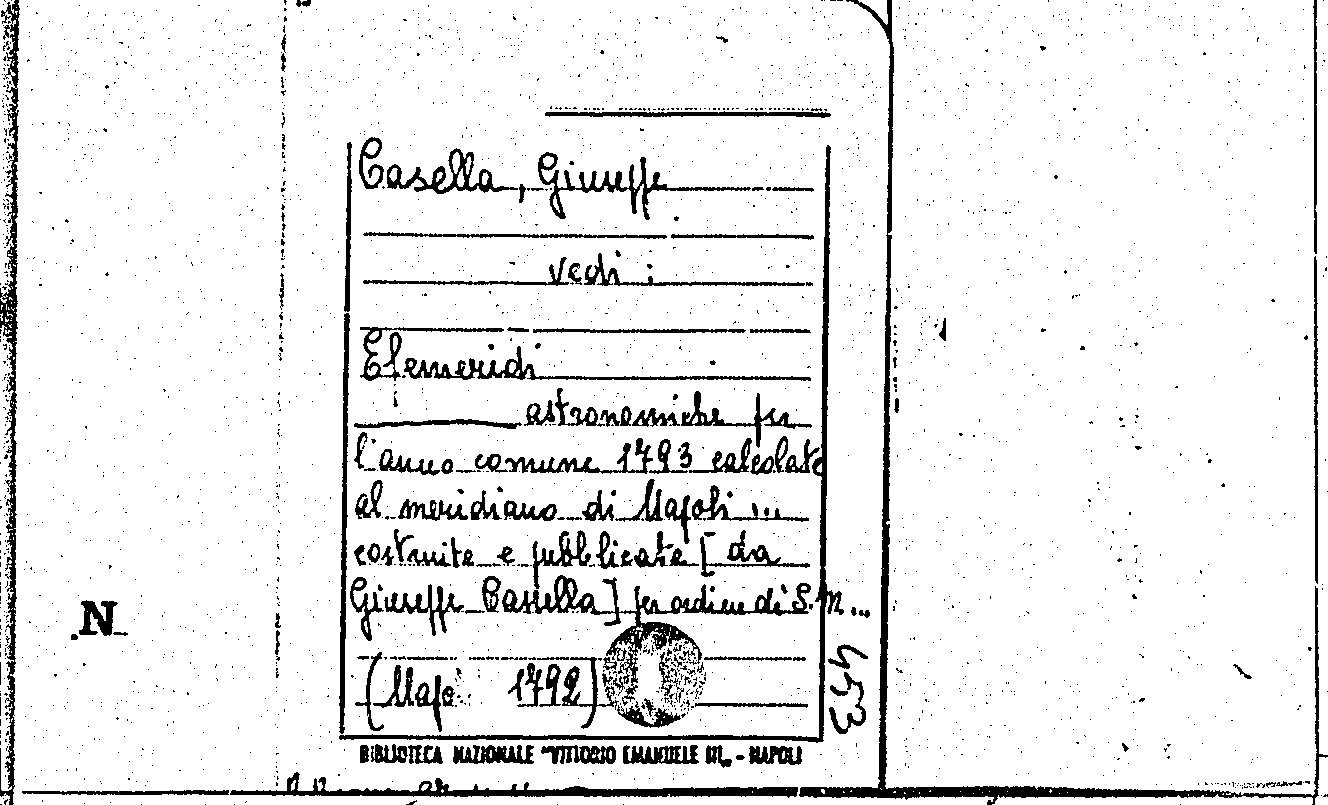 Casella, Giuseppe
vedi :
Efemeridi
astronomiche per
l'anno comune 1793 calcolate
al meridiano di Napoli ...
costruite e pubblicate [ da
Giuseppe Casella ] per ordine di S. M...
.N
(Napo 1792)
453
BIBLIOTECA NAZIONALE "VITTORIO EMANUELE III„ - NAPOLI